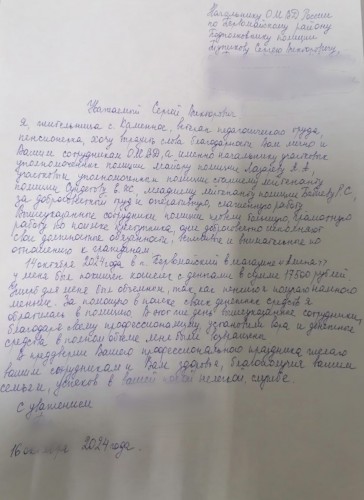 Начальнику ОМВД России
по Первомайскому району
подполковнику полиции
Сергею Викторовичу
Уважаемый Сергей Викторович
Я жительница с. Каменное, ветеран педагогического труда,
пенсионерка, хочу сказать слова благодарности Вам лично и
Вашим сотрудникам ОМВД, а именно начальнику участковых
уполномоченных полиции майору полиции А.А,
участковым уполномоченным полиции старшему лейтенанту
полиции младшему лейтенанту полиции Р.С,
за добросовестный труд и оперативную, слаженную работу.
Вышеуказанные сотрудники полиции провели большую, грамотную
работу по поимке преступника, они добросовестно исполняют
свои должностные обязанности, вежливы и внимательны по
отношению к гражданам.
14 октября 2024 года в п. Первомайский в магазине
у меня был похищен кошелек с деньгами в сумме 17500 рублей
Ущерб для меня был так как пенсия
меньше. За помощью в поиске своих денежных средств я
обратилась в полицию. В этот же день вышеуказанные сотрудники,
благодаря своему профессионализму установили вора и денежные
средства в полном объеме мне были возвращены.
В преддверии Вашего профессионального праздника, желаю
вашим сотрудникам и Вам здоровья, благополучия вашим
семьям, успехов в вашей службе.
С уважением
16 2024 года.